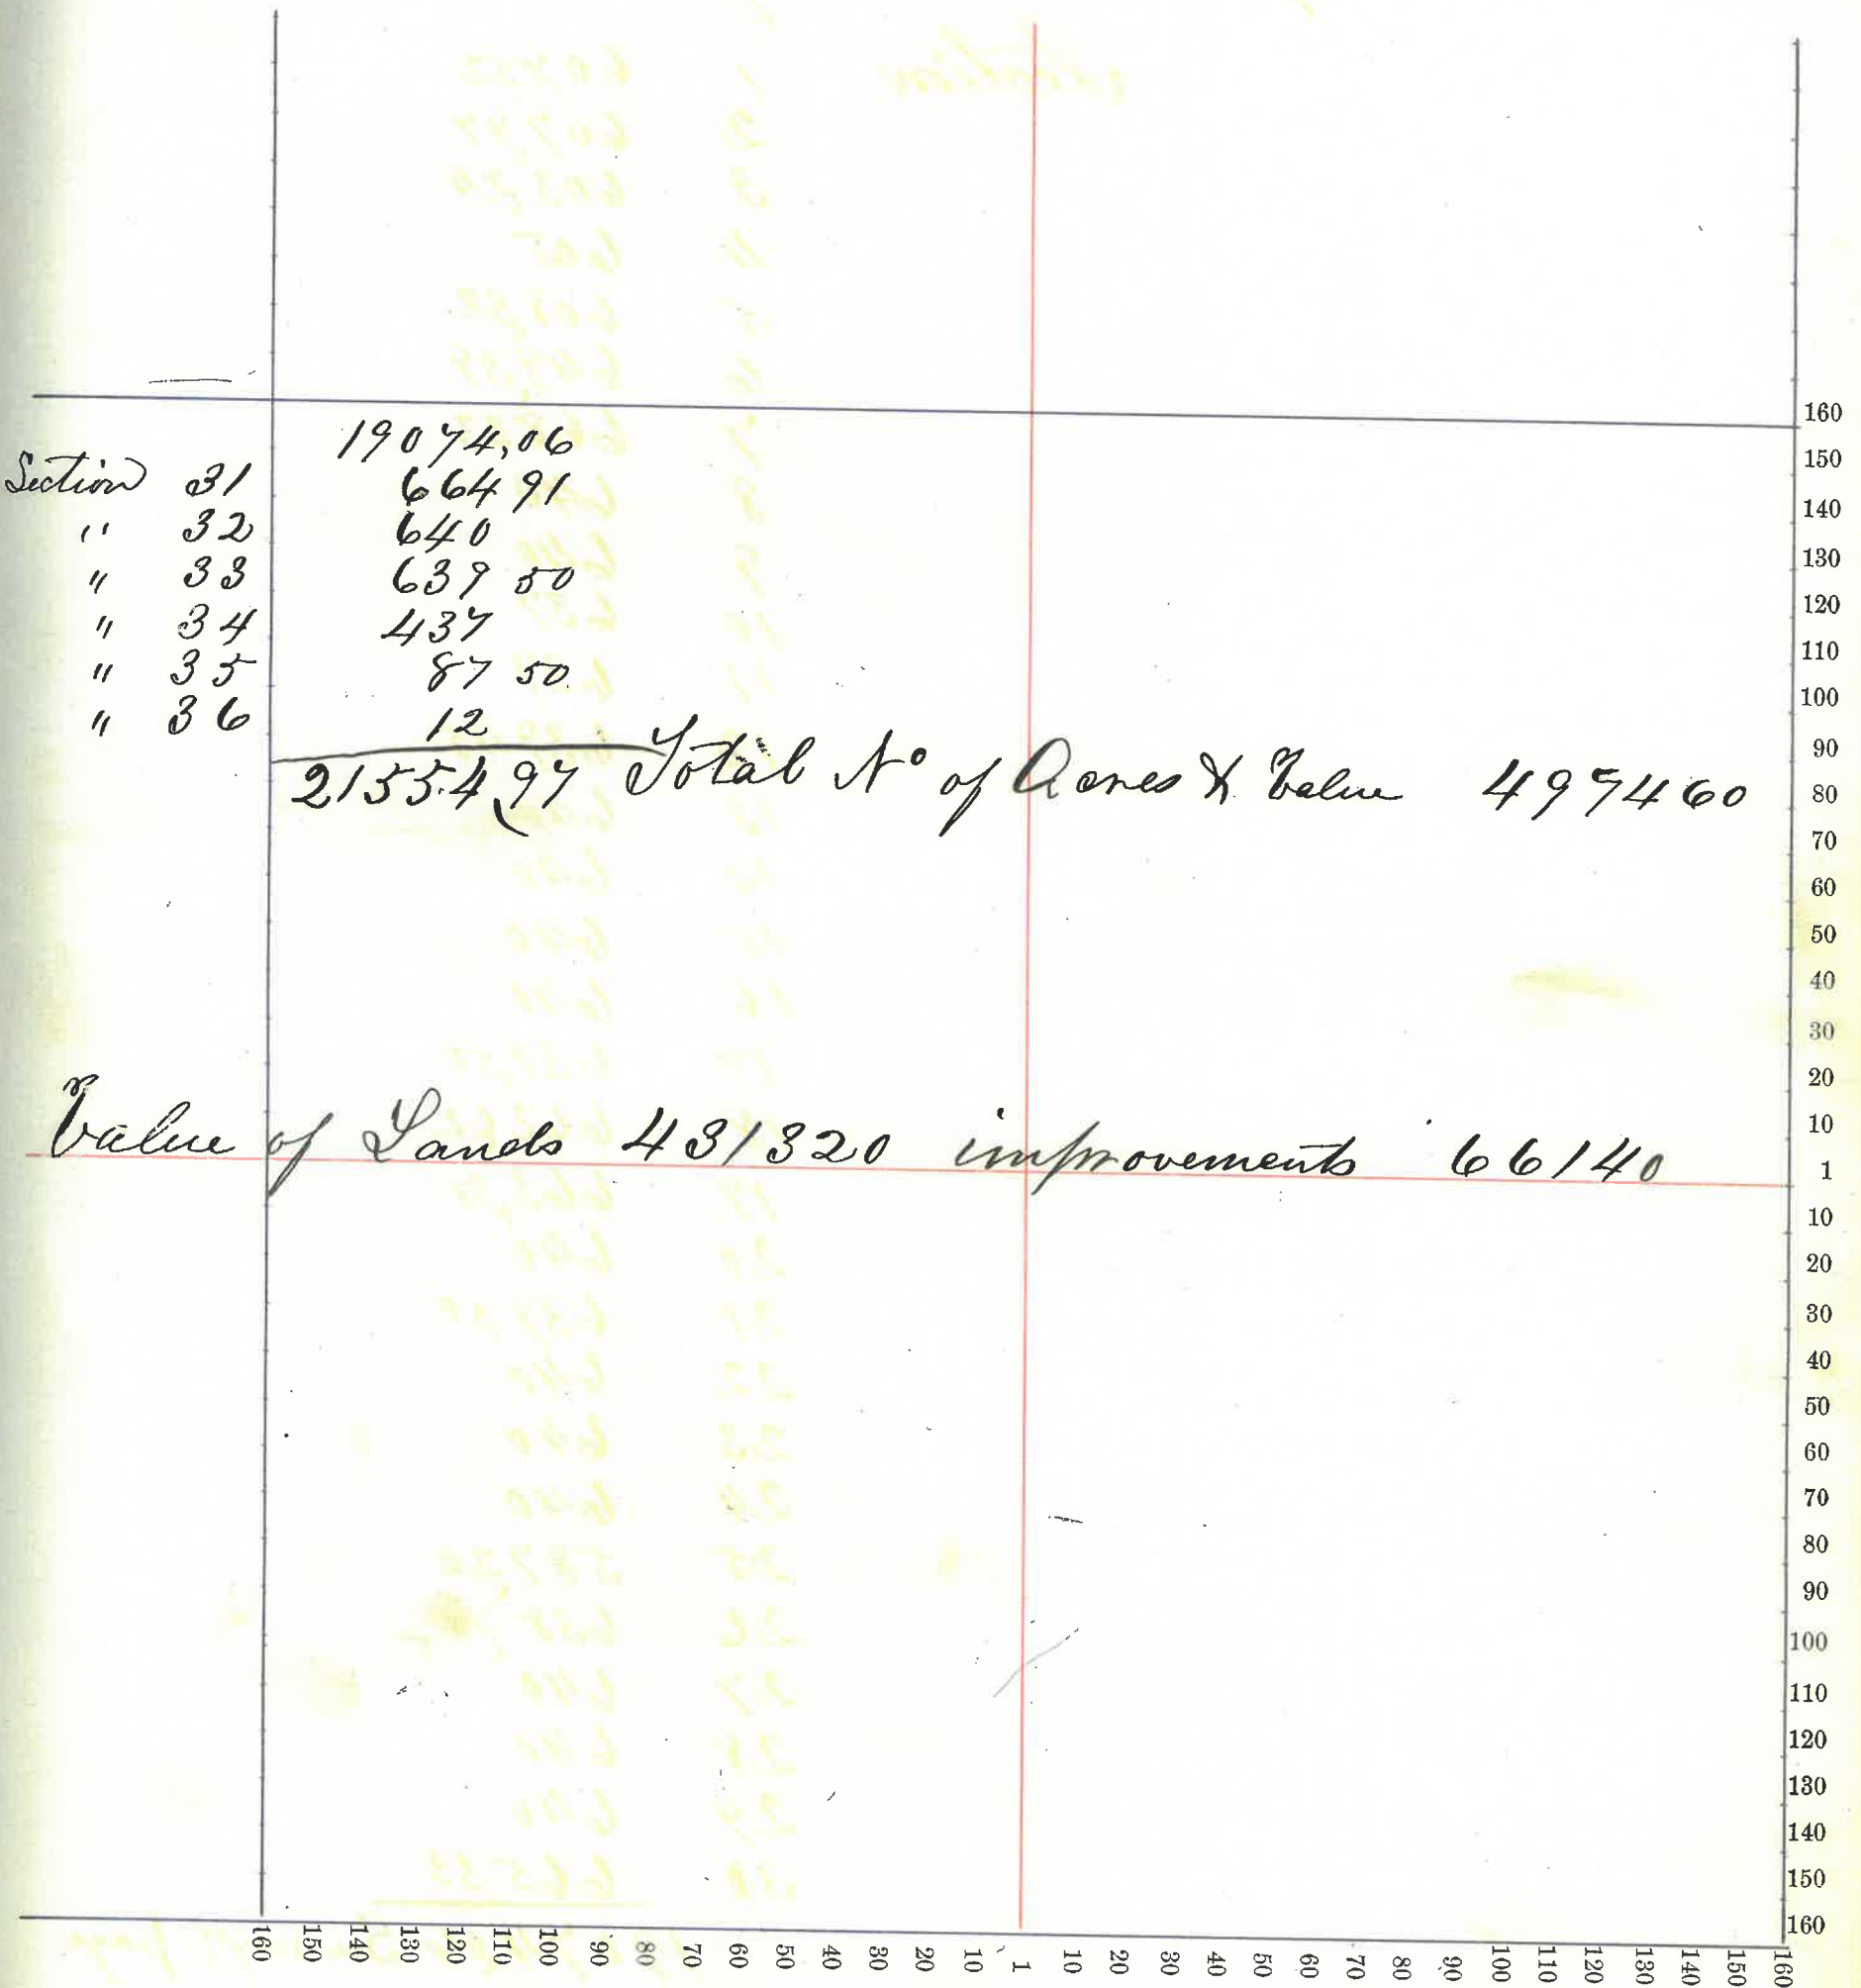 19074,06
Section 31 664 91
" 32 640
" 33 639 50
" 34 437
" 35 87 50
" 36 12
21554,97 Total No of Acres & Value 497460
Value of Lands 431320 improvements 66140
160
150
140
130
120
110
100
90
80
70
60
50
40
30
20
10
1
10
20
30
40
50
60
70
80
90
100
110
120
130
140
150
160
160 150 140 130 120 110 100 90 80 70 60 50 40 30 20 10 1 10 20 30 40 50 60 70 80 90 100 110 120 130 140 150 160